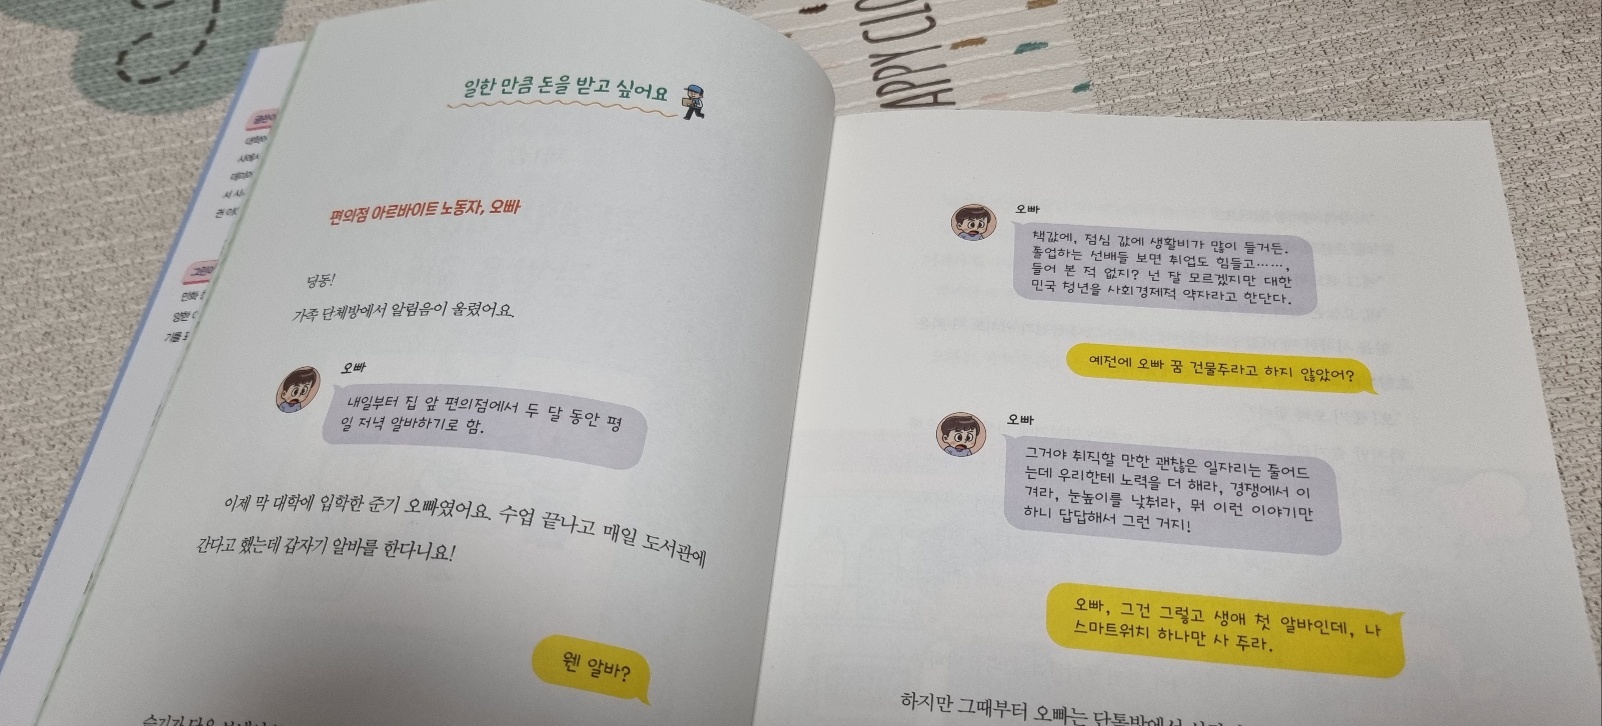 일한 만큼 돈을 받고 싶어요
편의점 아르바이트 노동자, 오빠
딩동!
가족 단체방에서 알림음이 울렸어요.
오빠
내일부터 집 앞 편의점에서 두 달 동안 평
일 저녁 알바하기로 함.
이제 막 대학에 입학한 준기 오빠였어요. 수업 끝나고 매일 도서관에
간다고 했는데 갑자기 알바를 한다니요!
웬 알바?
오빠
책값에, 점심 값에 생활비가 많이 들거든.
졸업하는 선배들 보면 취업도 힘들고……,
들어 본 적 없지? 넌 잘 모르겠지만 대한
민국 청년을 사회경제적 약자라고 한단다.
예전에 오빠 꿈 건물주라고 하지 않았어?
오빠
그거야 취직할 만한 괜찮은 일자리는 줄어드
는데 우리한테 노력을 더 해라, 경쟁에서 이
겨라, 눈높이를 낮춰라, 뭐 이런 이야기만
하니 답답해서 그런 거지!
오빠, 그건 그렇고 생애 첫 알바인데, 나
스마트워치 하나만 사 주라.
하지만 그때부터 오빠는 단톡방에서